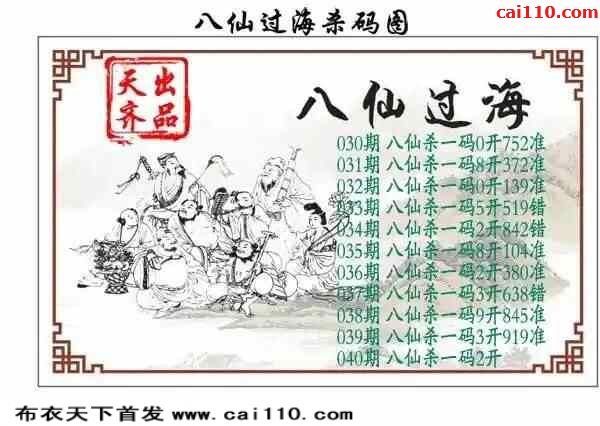 cai110.com
八仙过海杀码图
天出
齐品
八仙过海
030期 八仙杀一码0开752准
031期 八仙杀一码8开372准
032期 八仙杀一码0开139准
033期 八仙杀一码5开519错
034期 八仙杀一码2开842错
035期 八仙杀一码8开104准
036期 八仙杀一码2开380准
037期 八仙杀一码3开638错
038期 八仙杀一码9开845准
039期 八仙杀一码3开919准
040期 八仙杀一码2开
布衣天下首发 www.cai110.com